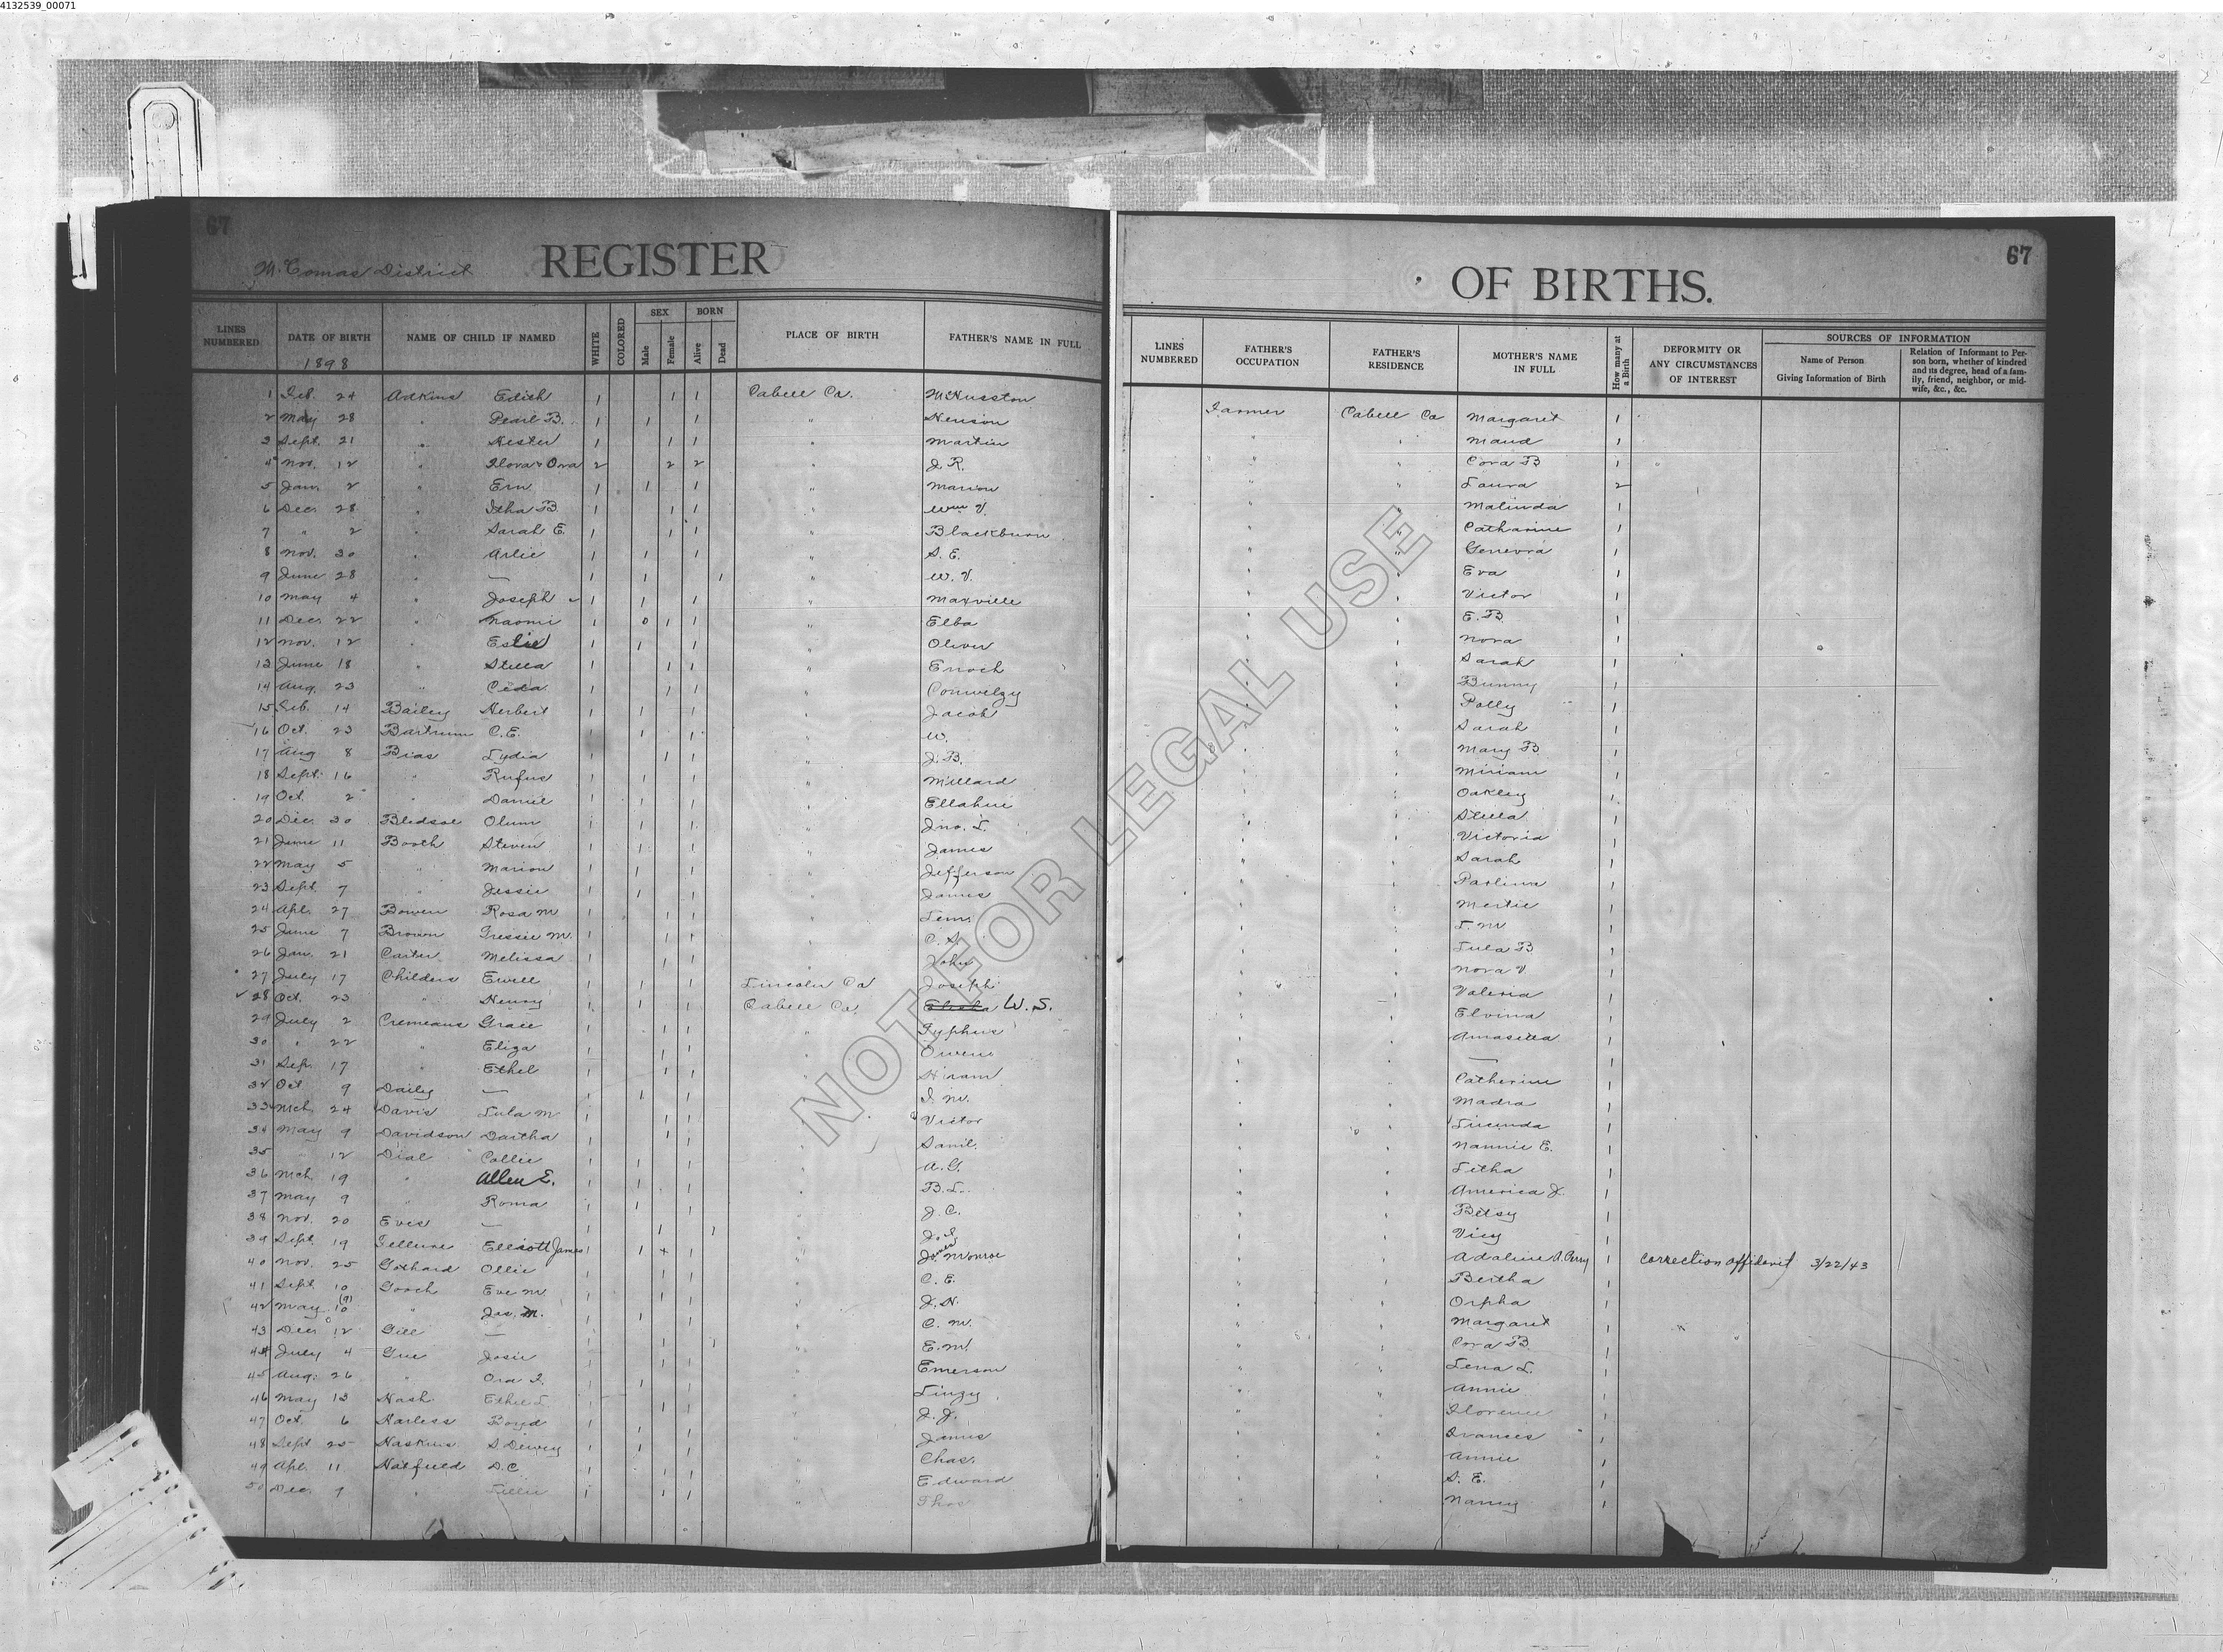 4132539_00071
67
McComas District REGISTER
LINES NUMBERED DATE OF BIRTH NAME OF CHILD IF NAMED WHITE COLORED SEX Male Female BORN Alive Dead PLACE OF BIRTH FATHER'S NAME IN FULL
1898
1 Feb. 24 Adkins Edith 1 1 1 Cabell Co. McHusston
2 May 28 " Pearl B. 1 1 1 " Henson
3 Sept. 21 " Hester 1 1 1 " Martin
4 Nov. 12 " Flora & Ora 2 2 2 " J. R.
5 Jan. 2 " Ern 1 1 1 " Marion
6 Dec. 28 " Itha B. 1 1 1 " Wm V.
7 " 2 " Sarah E. 1 1 1 " Blackburn
8 Nov. 30 " Arlie 1 1 1 " S. E.
9 June 28 " — 1 1 1 " W. V.
10 May 4 " Joseph 1 1 1 " Maxville
11 Dec. 22 " Naomi 1 0 1 1 " Elba
12 Nov. 12 " Eslie 1 1 1 " Oliver
13 June 18 " Stella 1 1 1 " Enoch
14 Aug. 23 " Ceda 1 1 1 " Conwelzy
15 Feb. 14 Bailey Herbert 1 1 1 " Jacob
16 Oct. 23 Bartrum C. E. 1 1 1 " W.
17 Aug 8 Bias Lydia 1 1 1 " J. B.
18 Sept. 16 " Rufus 1 1 1 " Millard
19 Oct. 2 " Daniel 1 1 1 " Ellahue
20 Dec. 30 Bledsoe Olum 1 1 1 " Jno. L.
21 June 11 Booth Steven 1 1 1 " James
22 May 5 " Marion 1 1 1 " Jefferson
23 Sept. 7 " Jessie 1 1 1 " James
24 Apl. 27 Bowen Rosa M 1 1 1 " Lem
25 June 7 Brown Gressie M. 1 1 1 " C. S.
26 Jan. 21 Carter Melissa 1 1 1 " John
27 July 17 Childers Ewell 1 1 1 Lincoln Co Joseph
28 Oct. 23 " Henry 1 1 1 Cabell Co. W. S.
29 July 2 Cremeans Grace 1 1 1 " Typhus
30 " 22 " Eliza 1 1 1 " Owen
31 Sep. 17 " Ethel 1 1 1 " Hiram
32 Oct 9 Dailey — 1 1 1 " I. M.
33 Mch 24 Davis Lula M 1 1 1 " Victor
34 May 9 Davidson Dartha 1 1 1 " Saml.
35 " 12 Dial Collie 1 1 1 " A. G.
36 Mch 19 " Allen E. 1 1 1 " B. L.
37 May 9 " Roma 1 1 1 " J. C.
38 Nov. 20 Eves — 1 1 1 "
39 Sept. 19 Fellure Elliott James 1 1 x 1 " James Monroe
40 Nov. 25 Gothard Ollie 1 1 1 " C. E.
41 Sept. 10 Gooch Eve M 1 1 1 " J. H.
42 May 10 (9) " Jas. M. 1 1 1 " C. M.
43 Dec. 12 Gill — 1 1 1 " E. M.
44 July 4 Gue Josie 1 1 1 " Emerson
45 Aug. 26 " Ora I. 1 1 1 " Linzy
46 May 13 Hash Ethel L. 1 1 1 " J. J.
47 Oct. 6 Harless Boyd 1 1 1 " James
48 Sept. 25 Haskins S. Dewey 1 1 1 " Chas.
49 Apl. 11 Hatfield D. C 1 1 1 " Edward
50 Dec. 9 " Tillie 1 1 1 " Thos
67
OF BIRTHS.
LINES NUMBERED FATHER'S OCCUPATION FATHER'S RESIDENCE MOTHER'S NAME IN FULL How many at a Birth DEFORMITY OR ANY CIRCUMSTANCES OF INTEREST SOURCES OF INFORMATION
Name of Person Giving Information of Birth
Relation of Informant to Person born, whether of kindred and its degree, head of a family, friend, neighbor, or midwife, &c., &c.
Farmer Cabell Co Margaret 1
" " Maud 1
" " Cora B 1
" " Laura 2
" " Malinda 1
" " Catharine 1
" " Genevra 1
" " Eva 1
" " Victor 1
" " E. B 1
" " Nora 1
" " Sarah 1
" " Bunny 1
" " Polly 1
" " Sarah 1
" " Mary B 1
" " Miriam 1
" " Oakley 1
" " Stella 1
" " Victoria 1
" " Sarah 1
" " Paolina 1
" " Mertie 1
" " L. M 1
" " Lula B 1
" " Nora V 1
" " Valeria 1
" " Elvina 1
" " Amasilla 1
" " — 1
" " Catherine 1
" " Madra 1
" " Lucinda 1
" " Nannie E. 1
" " Litha 1
" " America J. 1
" " Betsy 1
" " Vicy 1
" " Adaline A. Perry 1 correction affidavit 3/22/43
" " Bertha 1
" " Orpha 1
" " Margaret 1
" " Cora B. 1
" " Lena L. 1
" " Annie 1
" " Florence 1
" " Frances 1
" " Annie 1
" " S. E. 1
" " Nancy 1
NOT FOR LEGAL USE